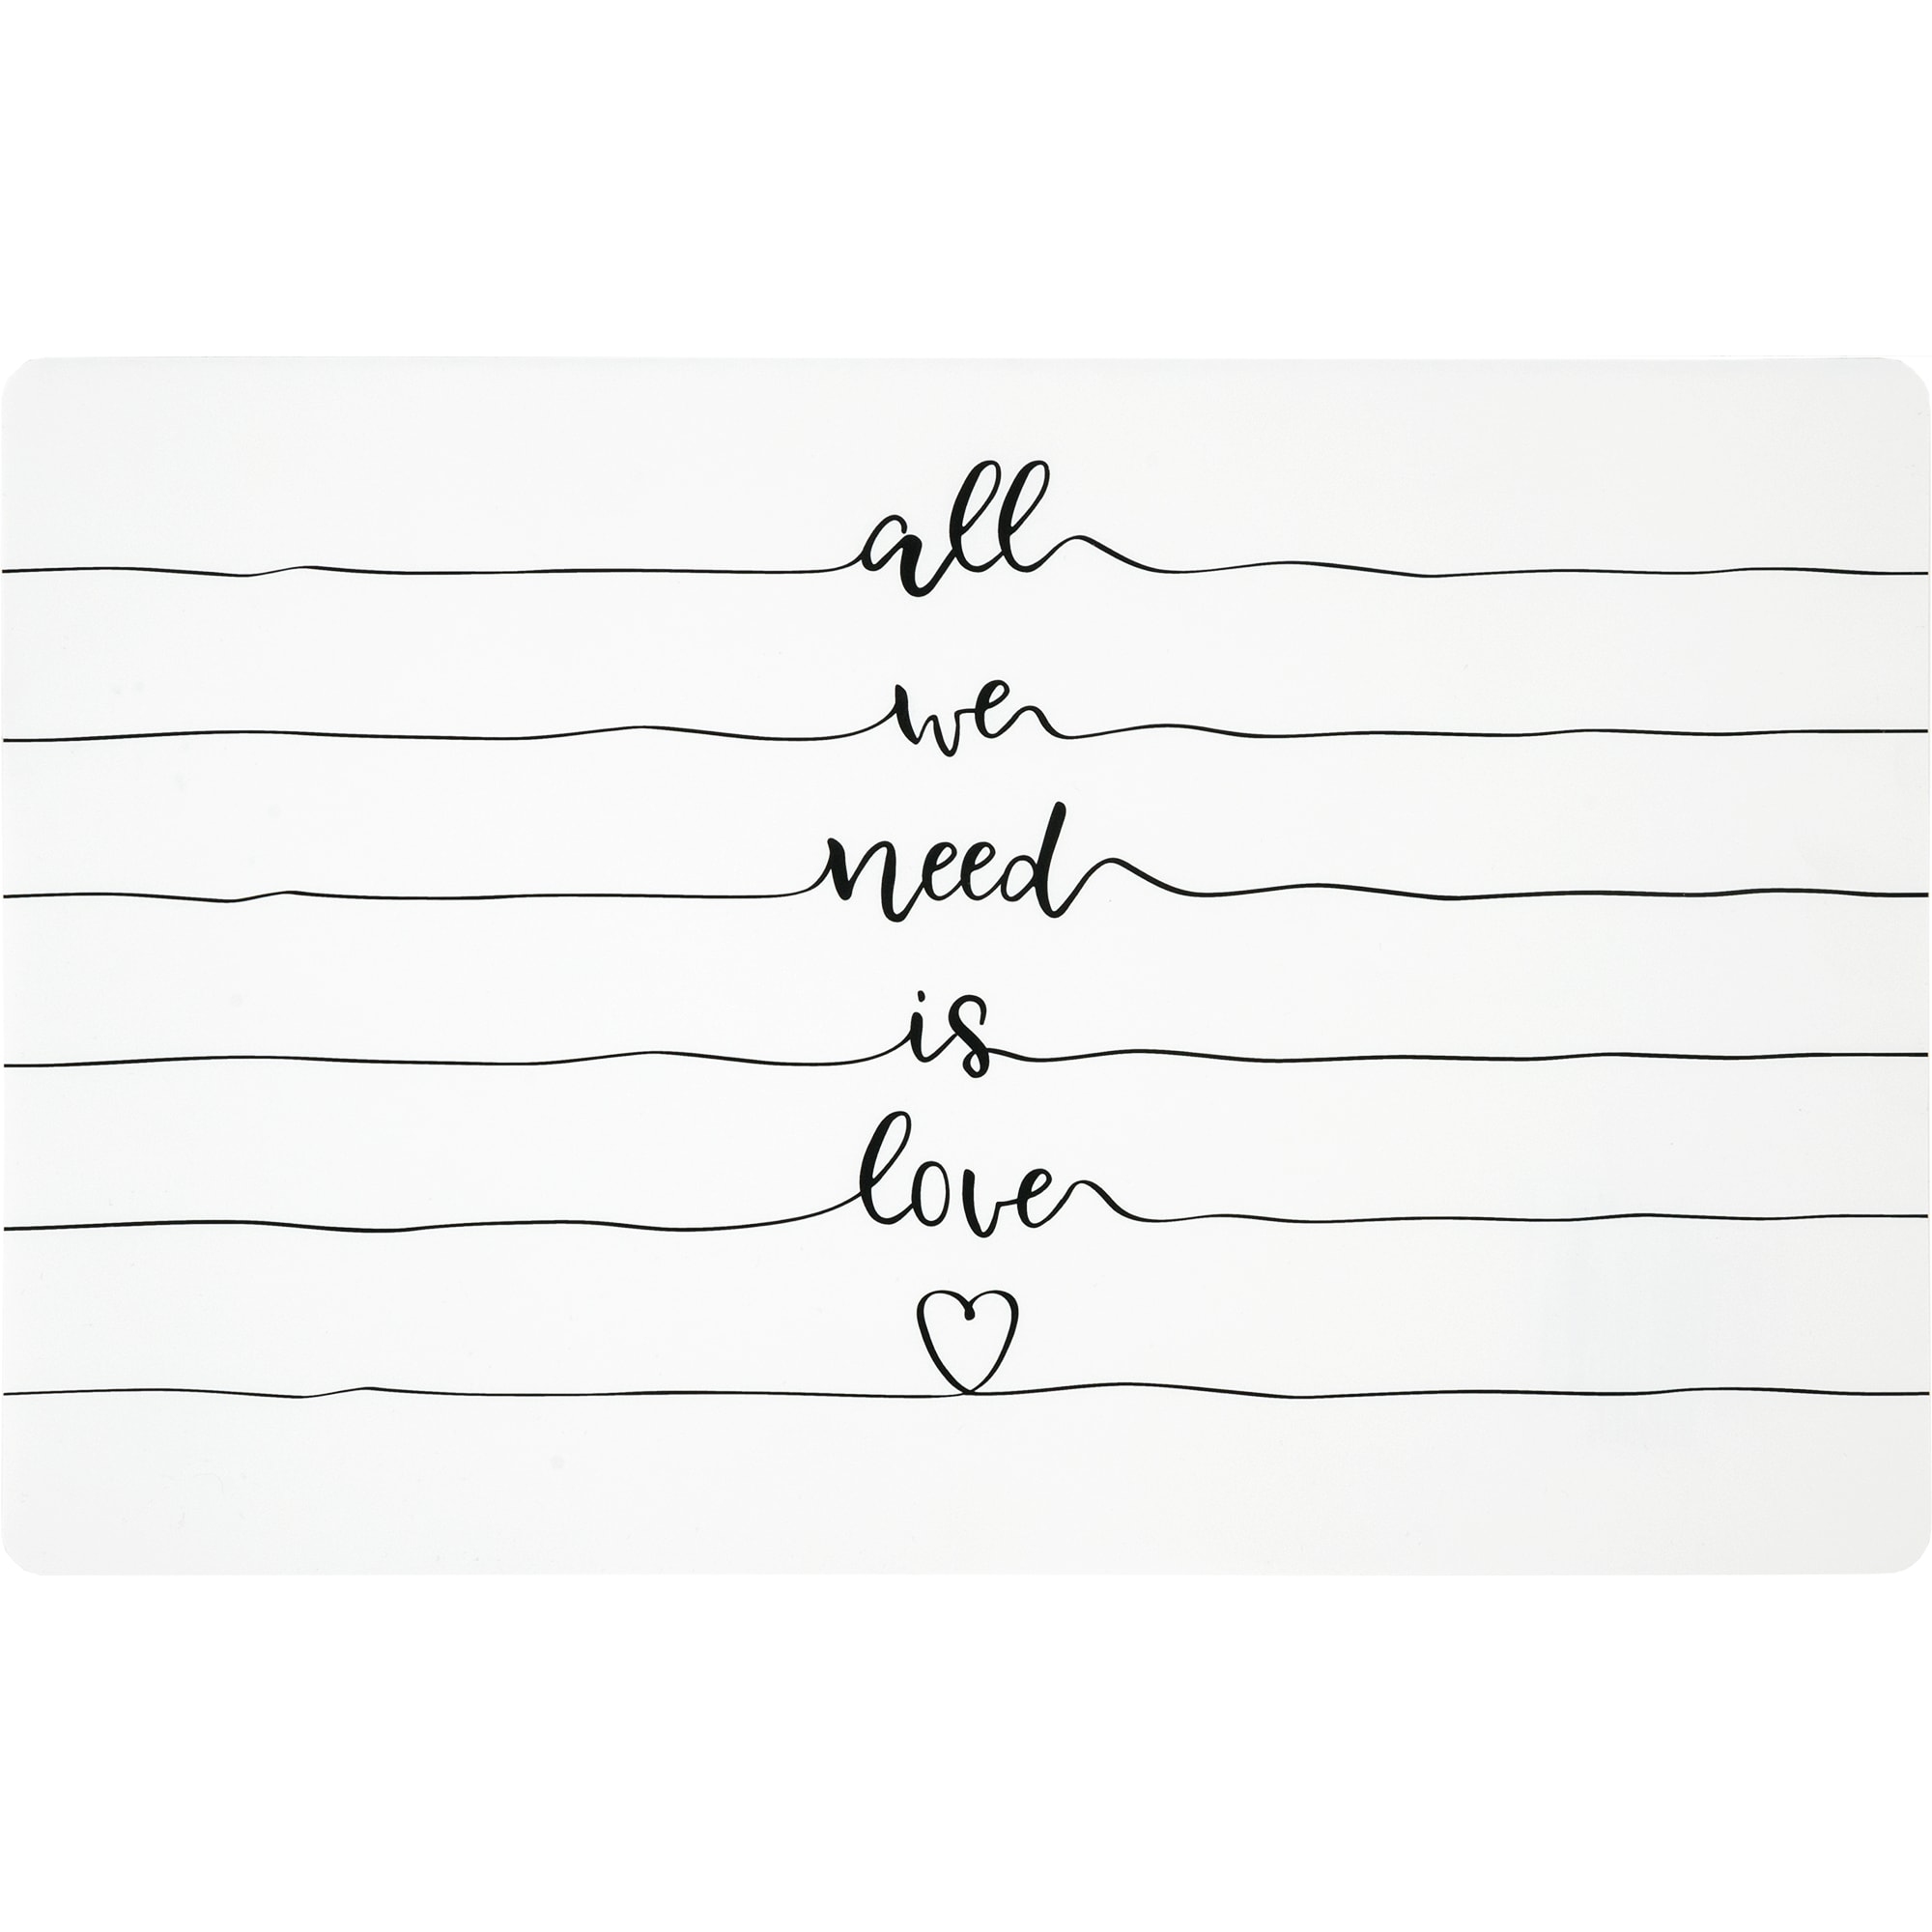 all
we
need
is
love